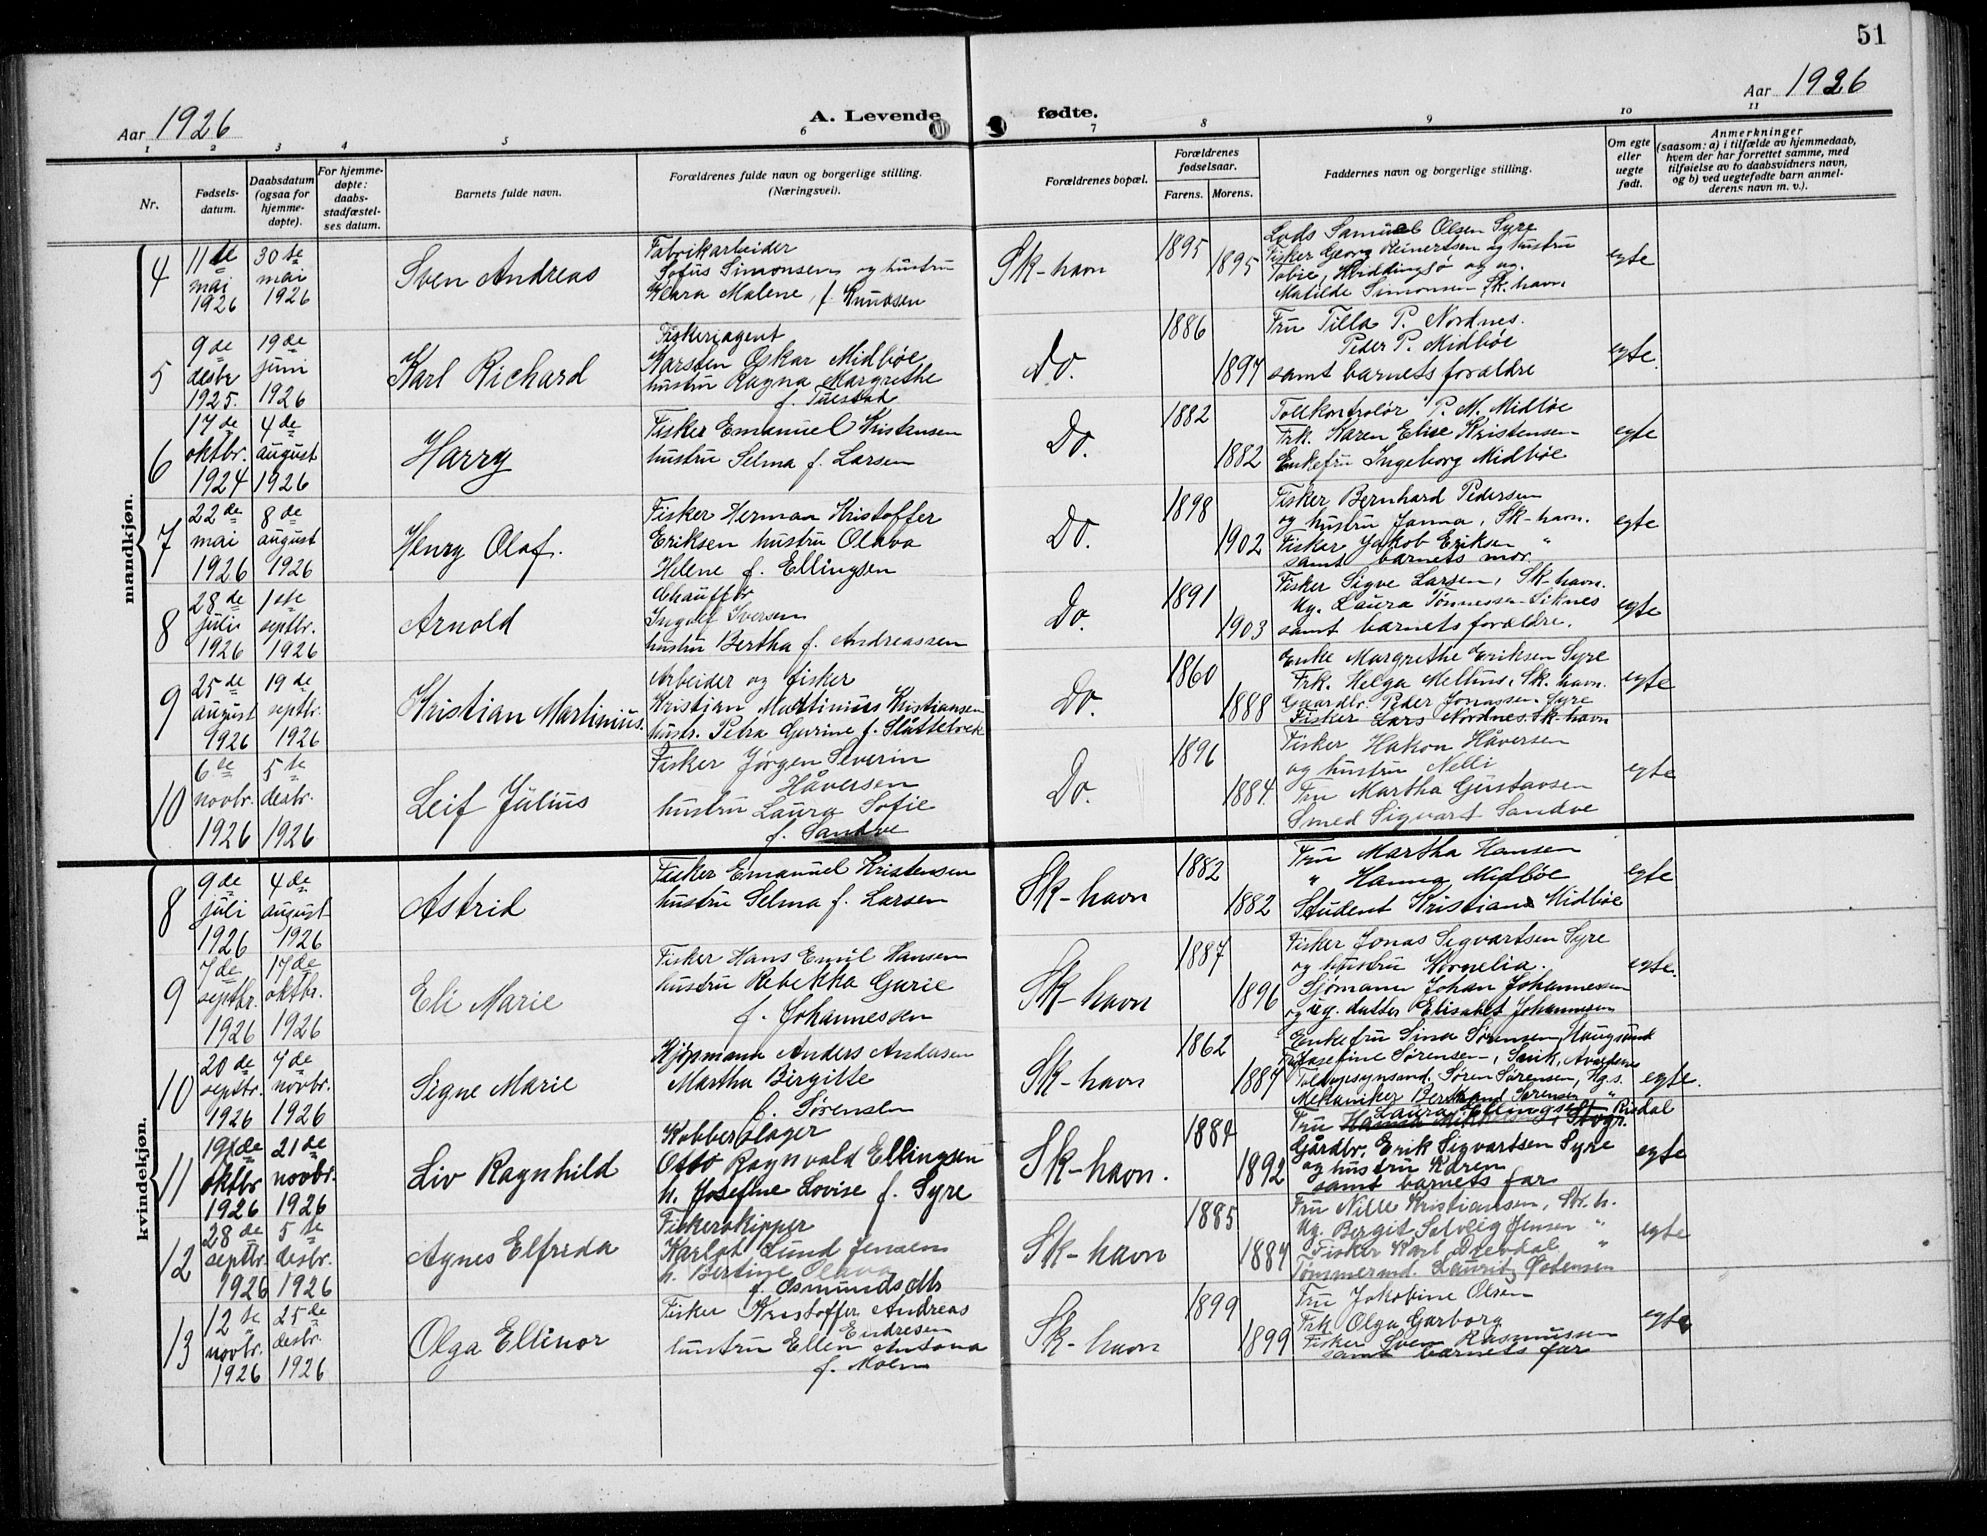 51
Aar 1926
A. Levende fødte.
Aar 1926
1 2 3 4 5 6 7 8 9 10 11
Nr.
Fødsels-
datum.
Daabsdatum
(ogsaa for
hjemme-
døpte).
For hjemme-
døpte:
daabs-
stadfæstel-
ses datum.
Barnets fulde navn.
Forældrenes fulde navn og borgerlige stilling.
(Næringsvei).
Forældrenes bopæl.
Forældrenes
fødselsaar.
Farens. Morens.
Faddernes navn og borgerlige stilling.
Om egte
eller
uegte
født.
Anmerkninger
(saasom: a) i tilfælde av hjemmedaab,
hvem der har forrettet samme, med
tilføielse av to daabsvidners navn,
og b) ved uegtefødte barn anmel-
derens navn m. v.).
mandkjøn.
4
11te
mai
1926
30te
mai
1926
Sven Andreas
Fabrikarbeider
Sofus Simonsen og hustru
Klara Malene, f. Knudsen
Sk-havn
1895
1895
Lods Samuel Olsen Syre
Fisker Georg Reinertsen og hustru
Tobie, Kviddingsø og ug.
Matilde Simonsen Sk.havn.
egte
5
9de
desbr
1925.
19de
juni
1926
Karl Richard
Fiskeriagent
Karsten Oskar Midbøe
hustru Ragna Margrethe
f. Tuestad
Do.
1886
1897
Fru Tilla P. Nordnes.
Peder P. Midbøe
samt barnets forældre
egte.
6
17de
oktbr.
1924
4de
august
1926
Harry
Fisker Emanuel Kristansen
hustru Selma f. Larsen
Do.
1882
1882
Tollkontrolør P. M. Midbøe
Frk. Karen Elise Kristensen
Enkefru Ingeborg Midbøe
egte
7
22de
mai
1926
8de
august
1926
Henry Olaf.
Fisker Herman Kristoffer
Eriksen hustru Olava
Helene f. Ellingsen
Do.
1898
1902
Fisker Bernhard Pedersen
og hustru Janna, Sk-havn.
Fisker Jakob Eriksen "
samt barnets mor.
egte
8
28de
juli
1926
1ste
septbr.
1926
Arnold
Chauffør
Ingolf Iversen
hustru Bertha f. Andreassen
Do.
1891
1903
Fisker Sigve Larsen, Sk-havn.
Ug. Laura Tønnessen-Siknes
samt barnets forældre.
egte
9
25de
august
1926
19de
septbr.
1926
Kristian Martinius.
Arbeider og fisker
Kristian Martinius Kristiansen
hustr. Petra Gurine f. Slåttelvek
Do.
1860
1888
Enke Margrethe Eriksen Syre
Frk. Helga Melhus, Sk.havn.
Gaardbr. Peder Jonassen Syre
Fisker Lars Nordnes. Sk-havn
egte
10
6te
novbr.
1926
5te
desbr.
1926
Leif Julius
Fisker Jørgen Severin
Håversen
hustru Laura Sofie
f. Sandve
Do.
1896
1884
Fisker Hakon Håversen
og hustru Nelli
Fru Martha Gustavsen
Smed Sigvart Sandve
egte
kvindekjøn.
8
9de
juli
1926
4de
august
1926
Astrid
Fisker Emanuel Kristensen
hustru Selma f. Larsen
Sk-havn
1882
1882
Fru Martha Hansen
" Hanna Midbøe
Student Kristian Midbøe
egte
9
7de
septbr.
1926
17de
oktbr.
1926
Eli Marie
Fisker Hans Emil Hansen
hustru Rebekka Gurie
f. Johannesen
Sk-havn
1887
1896
Fisker Jonas Sigvartsen Syre
og hustru Kornelia.
Sjømann Johan Johannessen
og ug. datter Elisabet Johannesen
egte.
10
20de
septbr.
1926
7de
novbr.
1926
Signe Marie
Kjøpmann Anders Andasen
Martha Birgitte
f. Sørensen
Sk-havn
1862
1887
Enkefru Sina Sørensen, Haugesund
Josefine Sørensen,
Søren Sørensen, Hg.s.
Mekaniker Bertrand Sørensen "
egte.
11
19de
oktbr
1926
21de
novbr.
1926
Liv Ragnhild
Kobberslager
Otto Ragnvald Ellingsen
h. Josefine Lovise f. Syre
Sk-havn.
1884
1892
Fru Laura Ellingsen Risdal
Gårdbr. Erik Sigvartsen Syre
og hustru Karen
samt barnets far
egte
12
28de
septbr.
1926
5te
desbr.
1926
Agnes Elfrida
Fiskerskipper
Karlot Lund Jensen
h. Bertine Olava
f. Osmundsdtr
Sk-havn
1885
1884
Fru Nille Kristiansen, Sk.h.
Ug. Bergit Solveig Jensen "
Fisker Karl Drevdal "
Tømmermd. Lauritz Pedersen
egte
13
12te
novbr.
1926
25de
desbr.
1926
Olga Ellinor
Fisker Kristoffer Andreas
Endresen
hustru Ellen Antona
f. Moen
Sk-havn
1899
1899
Fru Jakobine Olsen
Frk Olga Garborg
Fisker Sven Rasmussen
samt barnets far
egte